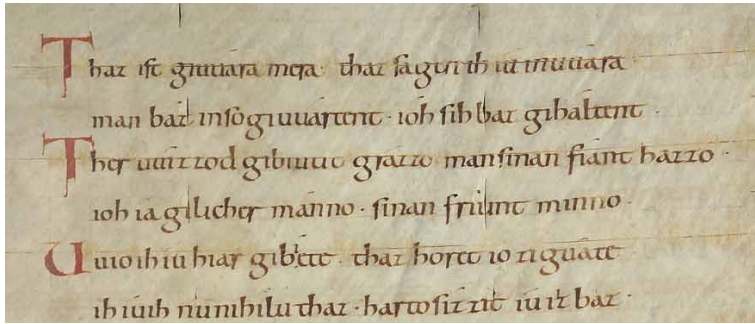 Thaz ist giuuára mera · thaz sagen ih iu inuuára ·
man baz insó giuuartent · ioh sih baz gihaltent ·
Ther uuizzod gibiutit grázzo · mansinan fíant hazzo ·
ioh iagilicher mánno · sinan fríunt mínno ·
Uuio ih iu hiar gibíete · thaz hóret io ziguáte
ih iuih nu nihilu thaz · harto sizit iu iz baz ·